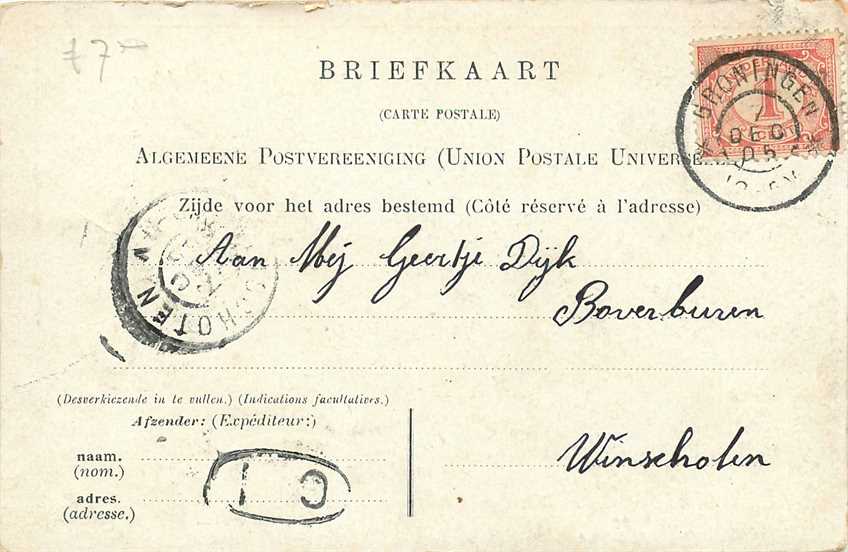 £7
BRIEFKAART
(CARTE POSTALE)
ALGEMEENE POSTVEREENIGING (UNION POSTALE UNIVERSE
Zijde voor het adres bestemd (Côté réservé à l'adresse)
GRONINGEN
7
DEC
05
1
Aan Mej Geertje Dijk
Boverburen
Winschoten
(Desverkiezende in te vullen.) (Indications facultatives.)
Afzender: (Expéditeur:)
naam.
(nom.)
adres.
(adresse.)